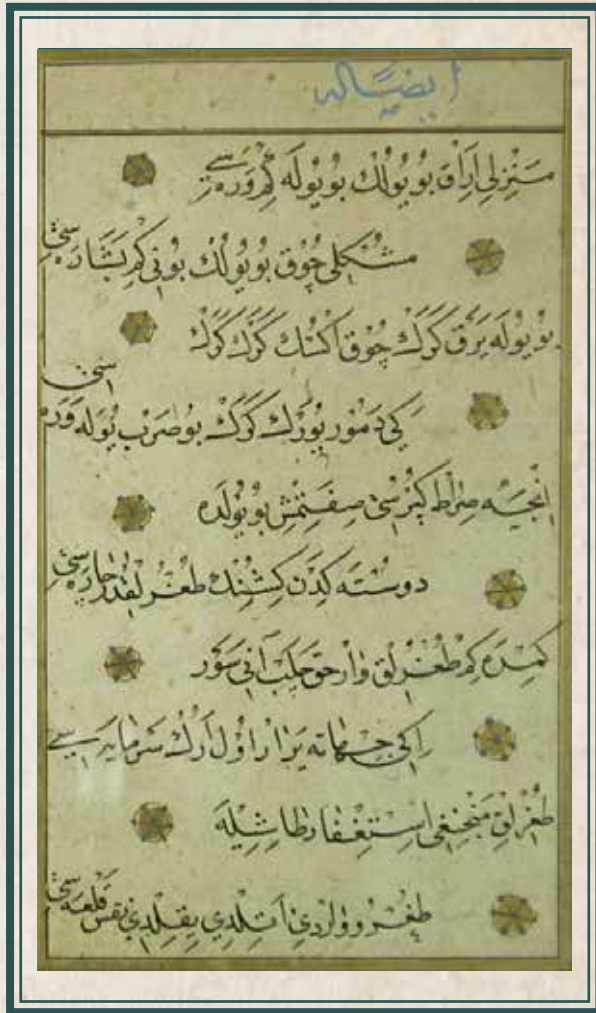 ايضًا له
مَنْزِلِي اِرَاقْ بُو يُولُكْ بُو يُولَه كِمْ وَرَه سِي
مُشْكِلِى چُوقْ بُو يُولُكْ بُونِي كِمْ بَشَارَه سِى
بُو يُولَه يَرَقْ كَرَكْ چُوقْ اَكْسُكْ كَرَكْ كَرَكْ
كَي دَمُورْ يُورَكْ كَرَكْ بُو صَرْبْ يُولَه وَرَه سِى
اِنْجَه صِرَاطْ كُپْرُسِى صِفَتِمِشْ بُو يُولْدَه
دُوسْتَه كِدَنْ كِشِنُكْ طُغْرُلِقْدُرْ چَارَه سِى
كِمْدَه كِمْ طُغْرُلِقْ وَارْ حَقْ چَلَبْ آنِي سَوَرْ
اِكِي جِهَانَه يَرَارْ اُولْ اَرُكْ سَرْمَايَه سِي
طُغْرُلِقْ مَنْجَنِقِى اِسْتِغْفَارْ طَاشِيلَه
طُغْرُو وَارْدِي اَتِلْدِي يِقِلْدِي نَفْسْ قَلْعَه سِى